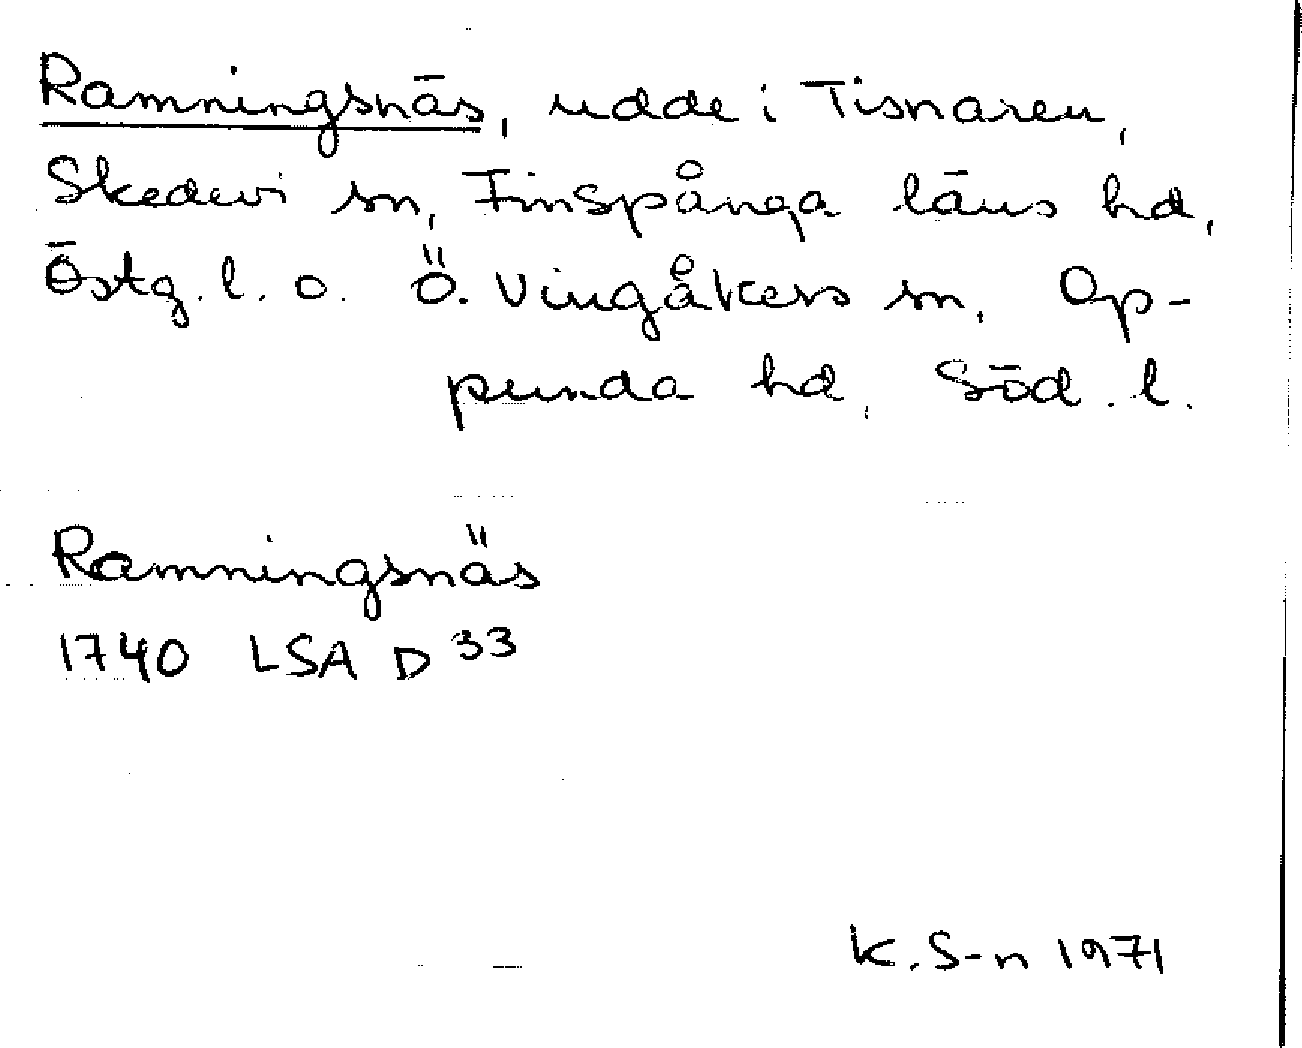 Ramningsnäs, udde i Tisnaren,
Skedevi sn, Finspånga läns hd,
Östg. l. o. Ö. Vingåkers sn, Op-
punda hd, Söd. l.
Ramningsnäs
1740 LSA D 33
K. S-n 1971